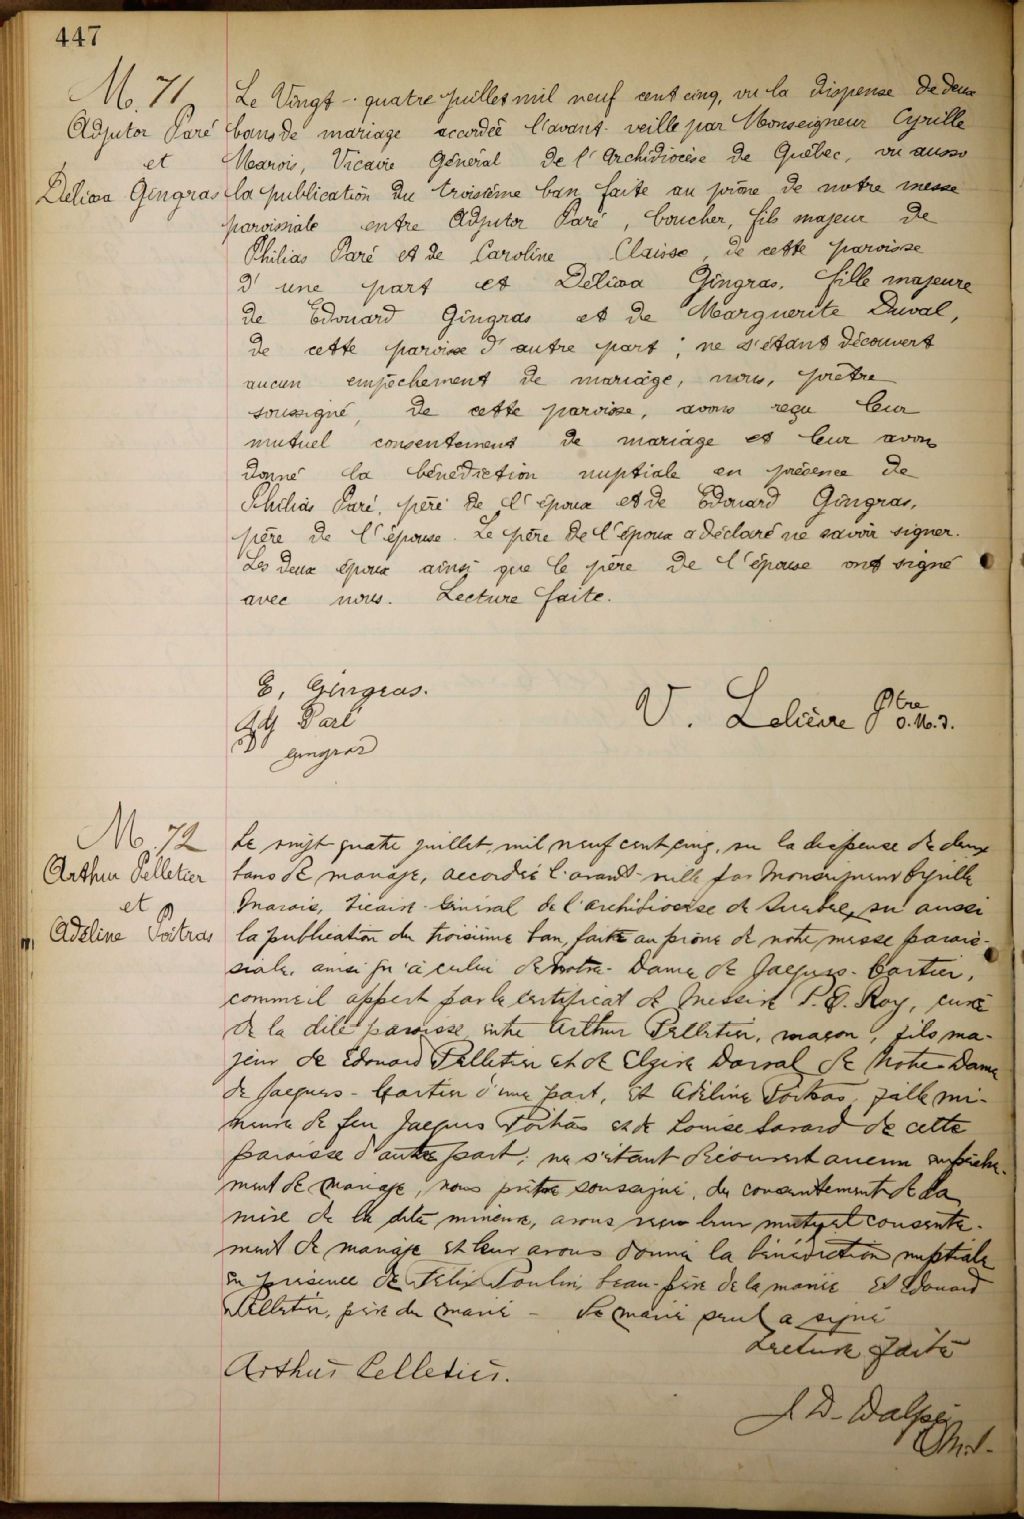 447
M. 71
Adjutor Paré
et
Délima Gingras
Le Vingt-quatre juillet mil neuf cent cinq, vu la dispense de deux
bans de mariage accordée l'avant-veille par Monseigneur Cyrille
Marois, Vicaire Général de l'Archidiocèse de Québec, vu aussi
la publication du troisième ban faite au prône de notre messe
paroissiale entre Adjutor Paré, boucher, fils majeur de
Philias Paré et de Caroline Claisse, de cette paroisse
d'une part et Délima Gingras, fille majeure
de Edouard Gingras et de Marguerite Duval,
de cette paroisse d'autre part ; ne s'étant découvert
aucun empêchement de mariage, nous, prêtre
soussigné, de cette paroisse, avons reçu leur
mutuel consentement de mariage et leur avons
donné la bénédiction nuptiale en présence de
Philias Paré, père de l'époux et de Edouard Gingras,
père de l'épouse. Le père de l'époux a déclaré ne savoir signer.
Les deux époux ainsi que le père de l'épouse ont signé
avec nous. Lecture faite.
E, Gingras.
Adj Paré
D gingras
V. Lelièvre Ptre
O.M.I.
M. 72
Arthur Pelletier
et
Adéline Poitras
Le vingt quatre juillet, mil neuf cent cinq, vu la dispense de deux
bans de mariage, accordée l'avant-veille par Monseigneur Cyrille
Marois, Vicaire-Général de l'archidiocèse de Québec, vu aussi
la publication du troisième ban, faite au prône de notre messe parois-
siale, ainsi qu'à celui de Notre-Dame de Jacques-Cartier,
comme il appert par le certificat de Messire P. E. Roy, curé
de la dite paroisse, entre Arthur Pelletier, maçon, fils ma-
jeur de Edouard Pelletier et de Elzire Dorval de Notre-Dame
de Jacques-Cartier d'une part, et Adéline Poitras, fille mi-
neure de feu Jacques Poitras et de Louise Savard de cette
paroisse d'autre part ; ne s'étant découvert aucun empêche-
ment de mariage, nous prêtre soussigné, du consentement de la
mère de la dite mineure, avons reçu leur mutuel consente-
ment de mariage et leur avons donné la bénédiction nuptiale
en présence de Félix Poulin, beau-père de la mariée et Edouard
Pelletier, père du marié - Le marié seul a signé
Lecture faite
Arthur Pelletier.
J. D- Dalpé
O.M.I-